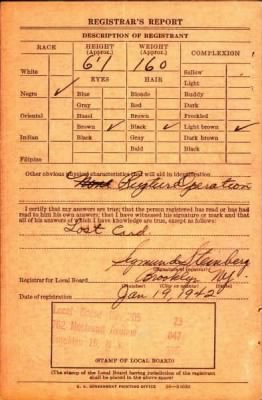 REGISTRAR'S REPORT
DESCRIPTION OF REGISTRANT
RACE HEIGHT (Approx.) WEIGHT (Approx.) COMPLEXION
6'1 160
White EYES HAIR Sallow
Light
Negro ✓ Blue Blonde Ruddy
Gray Red Dark
Oriental Hazel Brown Freckled
Brown ✓ Black ✓ Light brown ✓
Indian Black Gray Dark brown
Bald Black
Filipino
Other obvious physical characteristics that will aid in identification
Operation
I certify that my answers are true; that the person registered has read or has had
read to him his own answers; that I have witnessed his signature or mark and that
all of his answers of which I have knowledge are true, except as follows:
Lost Card.
Sigmund Steinberg
(Signature of registrar)
Registrar for Local Board Brooklyn NY
Date of registration Jan 19, 1942
Local Board
(STAMP OF LOCAL BOARD)
(The stamp of the Local Board having jurisdiction of the registrant
shall be placed in the above space.)
U. S. GOVERNMENT PRINTING OFFICE